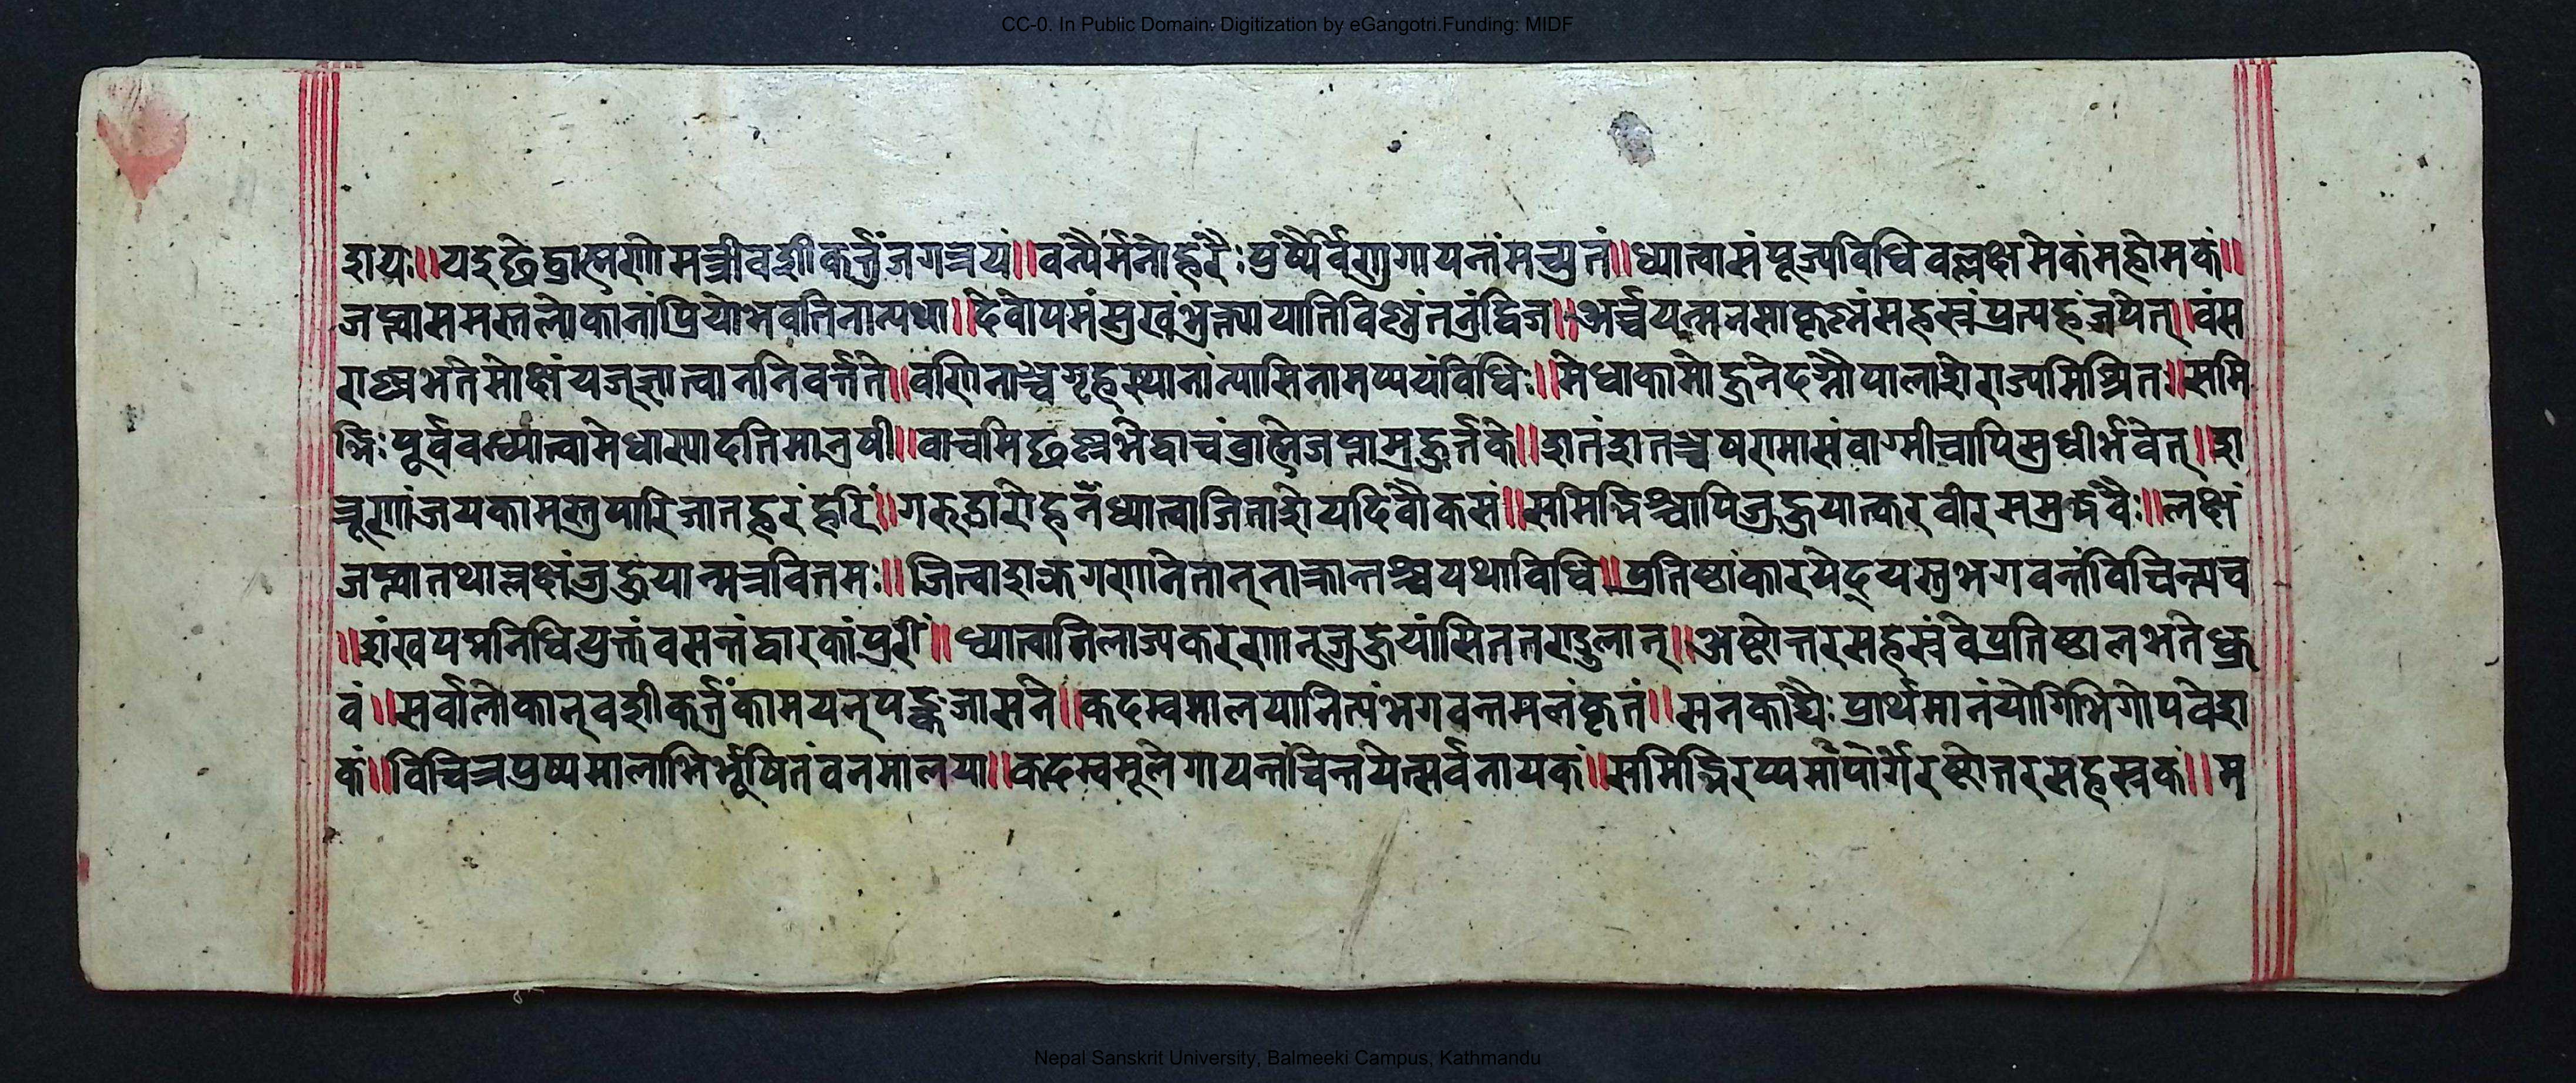 CC-0. In Public Domain. Digitization by eGangotri.Funding: MIDF
शयः॥यदृछेद्ब्राह्मणो मन्त्री वशीकर्त्तुं जगत्त्रयं॥वन्यैर्मनोहरैः पुष्पैर्वेणुगायन्तमच्युतं॥ध्यात्वा संपूज्य विधिवल्लक्षमेकं महोमकं॥
जप्त्वा समस्तलोकानां प्रियो भवति नान्यथा॥देवोपमं सुखं भुक्त्वा याति विष्णुं तनुं द्विज॥अर्च्चयन्मनसा कृष्णं सहस्रं प्रत्यहं जपेत्॥वंस
राल्लभते मोक्षं यज्ज्ञात्वा न निवर्त्तते॥वणिनाञ्च गृहस्थानां न्यासिनामप्ययं विधिः॥मेधाकामो हुनेदग्नौ पालाशे राज्यमिश्रितः॥समि
द्भिः पूर्ववध्यात्वा मेधास्यादति मानुषी॥वाचमिछल्लभेद्वाचं ब्राह्मे जप्तामुहुर्त्तके॥शतं शतञ्च षण्मासं वाग्मी चापि सुधीर्भवेत्॥श
त्रूणां जयकामस्तु पारिजातहरं हरिं॥गरुडारोहनं ध्यात्वा जिताशेयदिवौकसं॥समिद्भिश्चापि जुहुयात्करवीरसमुद्भवैः॥लक्षं
जप्त्वा तथा लक्षं जुहुयान्मन्त्रवित्तमः॥जित्वा शत्रुगणानेतान् नाक्रान्तश्च यथाविधि॥प्रतिष्ठां कारयेद्यस्तु भगवन्तं विचिन्त्य च
॥शंखपद्मनिधियुक्तं वसन्तं द्वारकां पुरीं॥ध्यात्वा तिलाज्यकरणान् जुहुयांसिततण्डुलान्॥अष्टोत्तरसहस्रं वै प्रतिष्ठा लभते ध्रु
वं॥सर्वालोकान् वशीकर्त्तुं कामयन् पङ्कजासने॥कदम्बमालया नित्यं भगवन्तमलंकृतं॥सनकाद्यैः प्रार्थमानं योगिभिर्गोपवेश
कं॥विचित्रपुष्पमालाभिर्भूषितं वनमालया॥कदम्बमूले गायन्तं चिन्तयेत्सर्वनायकं॥समिद्भिरप्यमापोर्गैरष्टोत्तरसहस्रकं॥म
Nepal Sanskrit University, Balmeeki Campus, Kathmandu